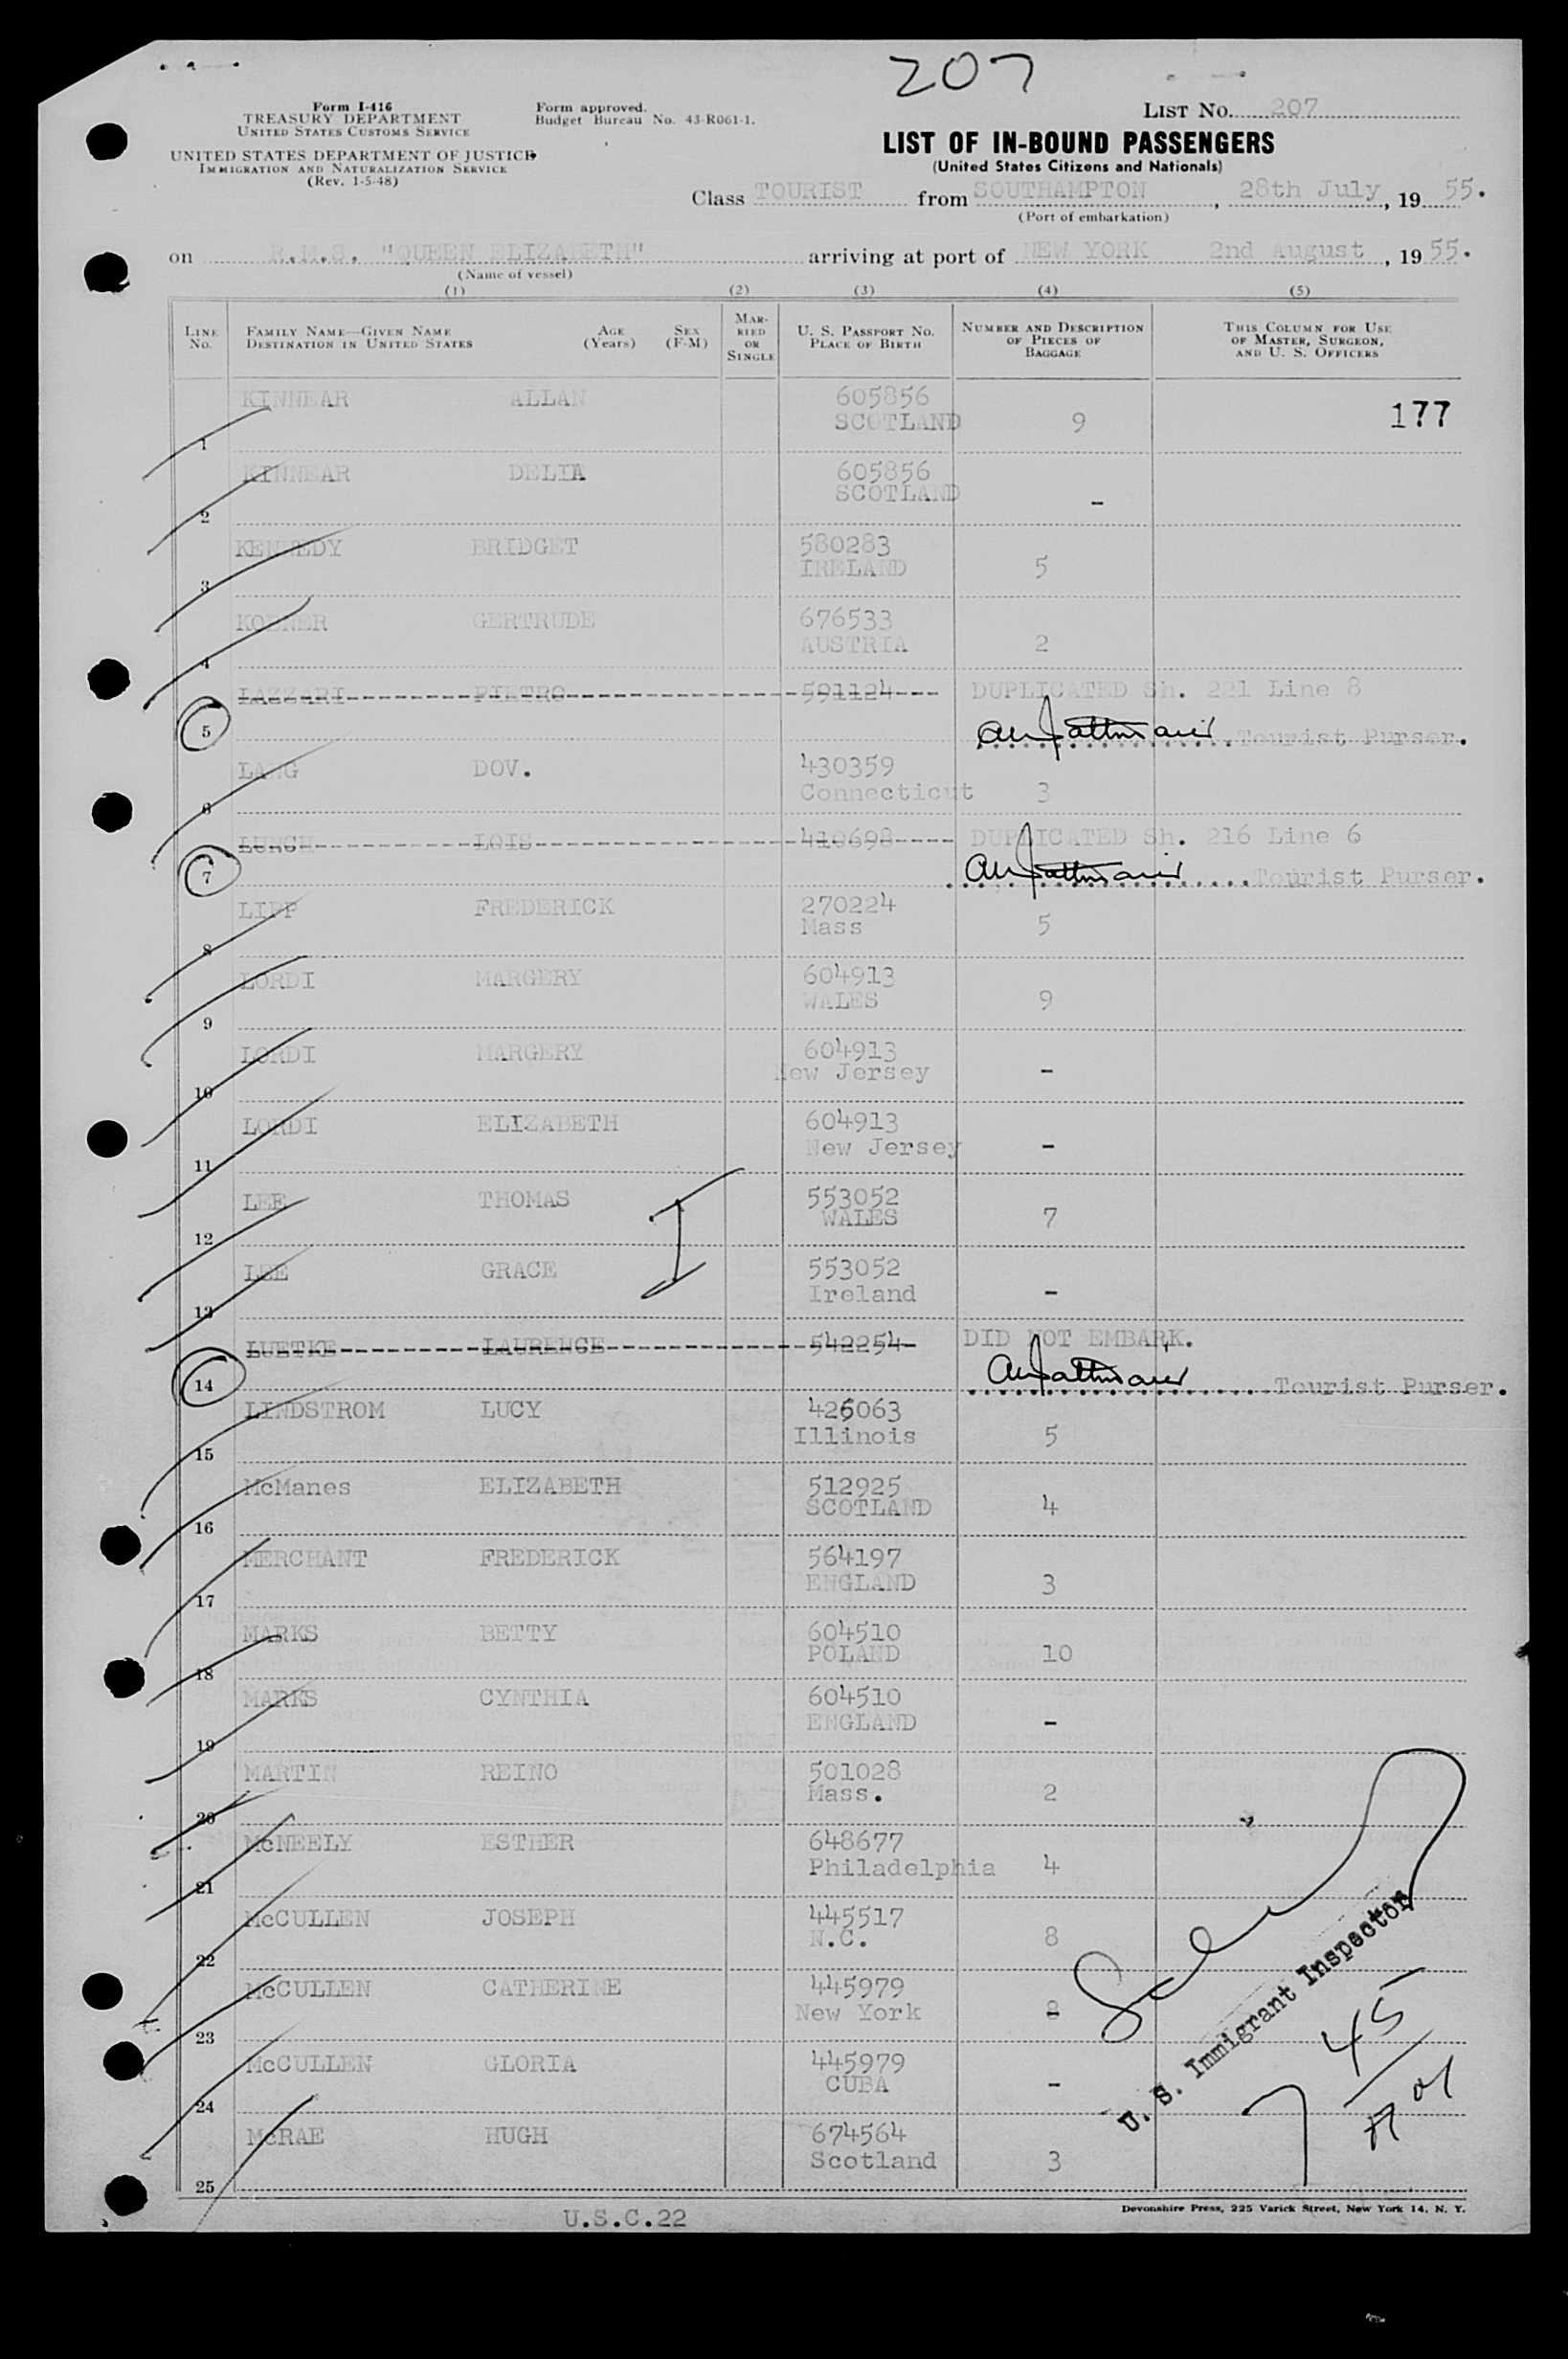 207
Form I-416
TREASURY DEPARTMENT
UNITED STATES CUSTOMS SERVICE
UNITED STATES DEPARTMENT OF JUSTICE
IMMIGRATION AND NATURALIZATION SERVICE
(Rev. 1-5-48)
Form approved.
Budget Bureau No. 43-R061-1.
LIST NO. 207
LIST OF IN-BOUND PASSENGERS
(United States Citizens and Nationals)
Class TOURIST from SOUTHAMPTON, 28th July, 19 55.
(Port of embarkation)
on R.M.S. "QUEEN ELIZABETH" arriving at port of NEW YORK 2nd August, 19 55.
(Name of vessel)
(1) (2) (3) (4) (5)
LINE NO. FAMILY NAME—GIVEN NAME DESTINATION IN UNITED STATES AGE (Years) SEX (F-M) MARRIED OR SINGLE U. S. PASSPORT NO. PLACE OF BIRTH NUMBER AND DESCRIPTION OF PIECES OF BAGGAGE THIS COLUMN FOR USE OF MASTER, SURGEON, AND U. S. OFFICERS
KINNEAR ALLAN 605856
1 SCOTLAND 9 177
KINNEAR DELIA 605856
2 SCOTLAND -
KENNEDY BRIDGET 580283
3 IRELAND 5
GERTRUDE 676533
4 AUSTRIA 2
LAZZARI PIETRO 591124 DUPLICATED Sh. 221 Line 8
5 Tourist Purser.
LANG DOV. 430359
6 Connecticut 3
LOIS 410698 DUPLICATED Sh. 216 Line 6
7 Tourist Purser.
LIPP FREDERICK 270224
8 Mass 5
LORDI MARGERY 604913
9 WALES 9
LORDI MARGERY 604913
10 New Jersey -
LORDI ELIZABETH 604913
11 New Jersey -
LEE THOMAS 553052
12 WALES 7
LEE GRACE 553052
13 Ireland -
LUETKE LAURENCE 542254 DID NOT EMBARK.
14 Tourist Purser.
LINDSTROM LUCY 426063
15 Illinois 5
McManes ELIZABETH 512925
16 SCOTLAND 4
MERCHANT FREDERICK 564197
17 ENGLAND 3
MARKS BETTY 604510
18 POLAND 10
MARKS CYNTHIA 604510
19 ENGLAND -
MARTIN REINO 501028
20 Mass. 2
McNEELY ESTHER 648677
21 Philadelphia 4
McCULLEN JOSEPH 445517
22 N.C. 8
McCULLEN CATHERINE 445979
23 New York
McCULLEN GLORIA 445979
24 CUBA -
McRAE HUGH 674564
25 Scotland 3
U. S. Immigrant Inspector
45
U.S.C.22
Devonshire Press, 225 Varick Street, New York 14, N. Y.